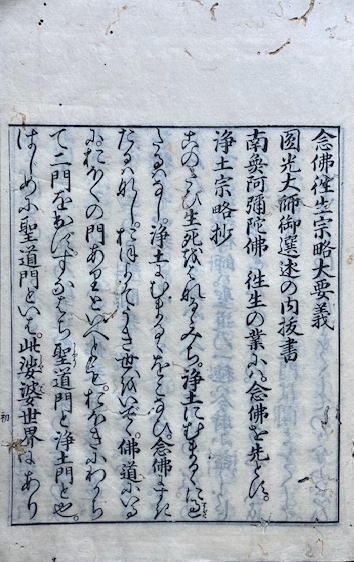 念佛往生宗略大要義
圓光大師御選述の内抜書
南無阿彌陀佛 往生の業にハ、念佛を先とす。
浄土宗略抄
このたび生死をはなるゝみち。浄土にむまるゝに過
たるハなし。浄土にむまるゝをこなひ。念佛にすぎ
たるハなし。おほよそうき世をいでゝ。佛道にいる
におほくの門ありといへとも。おほきにわかち
て二門を出す。すなはち聖道門と浄土門と也。
はしめに聖道門といハ。此娑婆世界にあり
初